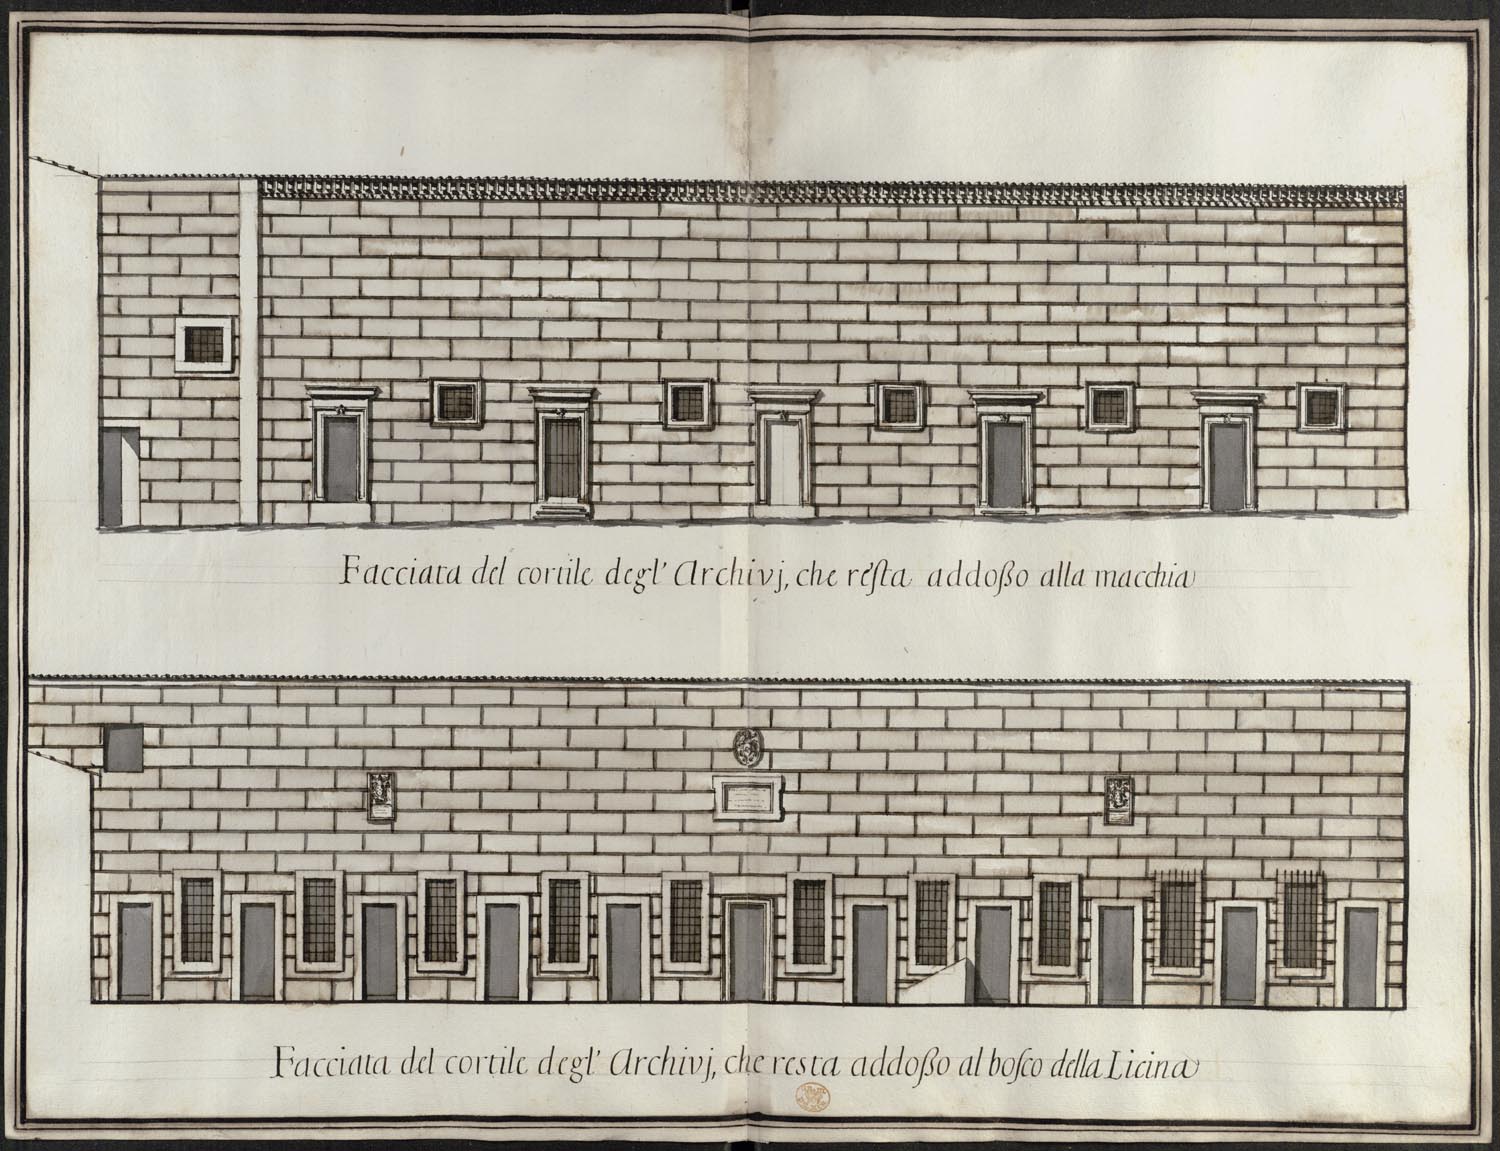 Facciata del cortile degl' Archivj, che reſta addoßo alla macchia
Facciata del cortile degl' Archivj, che resta addoßo al boſco della Licina